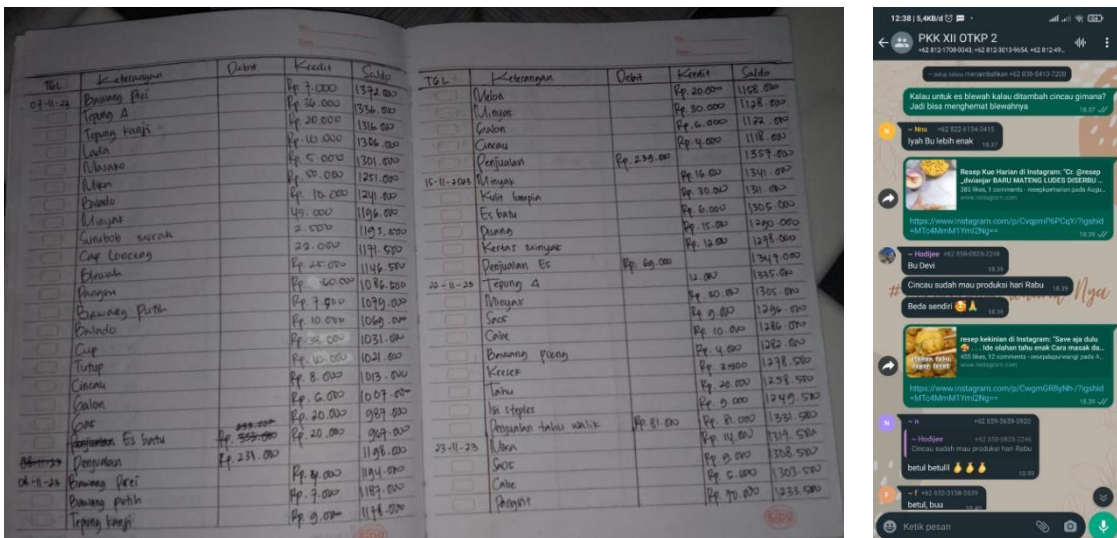 TGL Keterangan Debit Kredit Saldo
07-11-23 Bawang Prei Rp. 7.000 1372.000
Tepung Δ Rp. 36.000 1336.000
Tepung Kanji Rp. 20.000 1316.000
Lada Rp. 10.000 1306.000
Masako Rp. 5.000 1301.000
Rp. 50.000 1251.000
Balado Rp. 10.000 1241.000
Minyak 45.000 1196.000
2.500 1193.500
Cap Lonceng 22.000 1171.500
Blewah Rp. 25.000 1146.500
Pangsit Rp. 60.000 1086.500
Bawang Putih Rp. 7.500 1079.000
Balado Rp. 10.000 1069.000
Cup Rp. 38.000 1031.000
Tutup Rp. 10.000 1021.000
Cincau Rp. 8.000 1013.000
Galon Rp. 6.000 1007.000
Gas Rp. 20.000 987.000
Es batu Rp. 20.000 967.000
Penjualan Rp. 231.000 1198.000
08-11-23 Bawang Prei Rp. 4.000 1194.000
Bawang putih Rp. 7.000 1187.000
Tepung kanji Rp. 9.000 1178.000
TGL Keterangan Debit Kredit Saldo
Melon Rp. 20.000 1158.000
Minyak Rp. 30.000 1128.000
Galon Rp. 6.000 1122.000
Cincau Rp. 4.000 1118.000
Penjualan Rp. 239.000 1357.000
15-11-2023 Minyak Rp. 16.000 1341.000
Kulit lumpia Rp. 30.000 1311.000
Es batu Rp. 6.000 1305.000
Pisang Rp. 15.000 1290.000
Kertas minyak Rp. 12.000 1278.000
Penjualan Es Rp. 69.000 1347.000
22-11-23 Tepung Δ 12.000 1335.000
Minyak Rp. 30.000 1305.000
Saos Rp. 9.000 1296.000
Cabe Rp. 10.000 1286.000
Bawang Rp. 4.000 1282.000
Kresek Rp. 3500 1278.500
Tahu Rp. 20.000 1258.500
Isi steples Rp. 9.000 1249.500
Penjualan tahu walik Rp. 81.000 Rp. 81.000 1331.500
23-11-23 Mika Rp. 14.000 1317.500
Saos Rp. 9.000 1308.500
Cabe Rp. 5.000 1303.500
Pangsit Rp. 70.000 1233.500
SIDU
SIDU
12:38 | 5,4KB/d
PKK XII OTKP 2
+62 812-1708-0043, +62 812-3013-9654, +62 812-49...
menambahkan +62 838-5413-7200
Kalau untuk es blewah kalau ditambah cincau gimana? Jadi bisa menghemat blewahnya
18.37
N ~ Nns +62 822-6134-0415
Iyah Bu lebih enak 18.37
Resep Kue Harian di Instagram: "Cr. @resep
_dwianjar BARU MATENG LUDES DISERBU ...
383 likes, 1 comments - resepkueharian pada Augu...
www.instagram.com
https://www.instagram.com/p/CvqpmP6PCqY/?igshid
=MTc4MmM1YmI2Ng==
18.39
~ Hodijee +62 859-0825-2246
Bu Devi 18.39
Cincau sudah mau produksi hari Rabu 18.39
Beda sendiri 🥰🙏 18.39
resep kekinian di Instagram: "Save aja dulu
🥰 . . . Ide olahan tahu enak Cara masak da...
455 likes, 12 comments - resepdapurwangi pada A...
www.instagram.com
https://www.instagram.com/p/CwgmGRByNh-/?igshid
=MTc4MmM1YmI2Ng==
18.39
N ~ n +62 859-5659-5920
~ Hodijee +62 859-0825-2246
Cincau sudah mau produksi hari Rabu
betul betulll 18.39
F ~ f +62 852-3158-5539
betul, buu
Ketik pesan